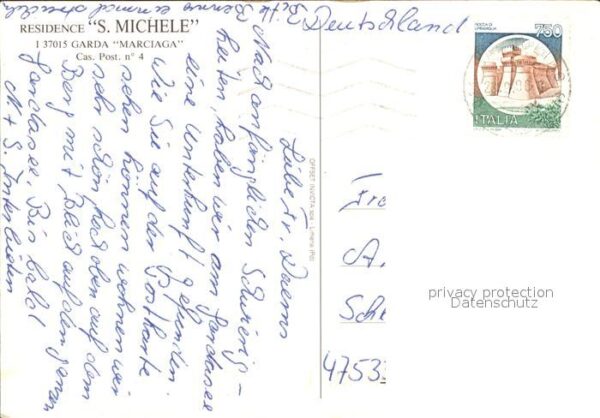 RESIDENCE "S. MICHELE"
I 37015 GARDA "MARCIAGA"
Cas. Post. n° 4
Deutschland
750
ROCCA DI URBISAGLIA
ITALIA
Liebe Fr. Daems
Nach anfänglichen Schwierig-
keiten, haben wir am Gardasee
eine Unterkunft gefunden.
Wie Sie auf der Postkarte
sehen können wohnen wir
sehr schön, hoch oben auf dem
Berg mit Blick auf den ganzen
Gardasee. Bis bald
M + S.
OFFSET INVICTA
Fra
A.
Sche
4753
privacy protection
Datenschutz